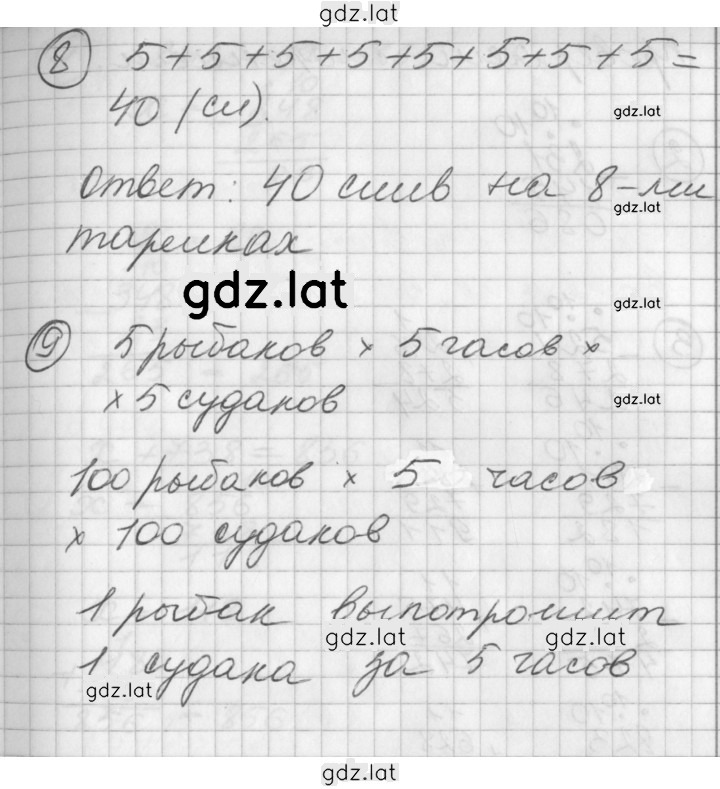 gdz.lat
8 5+5+5+5+5+5+5+5=
40 (сл).
gdz.lat
Ответ: 40 слив на 8-ми
gdz.lat
тарелках
gdz.lat
gdz.lat
9 5 рыбаков × 5 часов ×
× 5 судаков
gdz.lat
100 рыбаков × 5 часов
× 100 судаков
1 рыбак выпотрошит
gdz.lat gdz.lat
1 судака за 5 часов
gdz.lat
gdz.lat